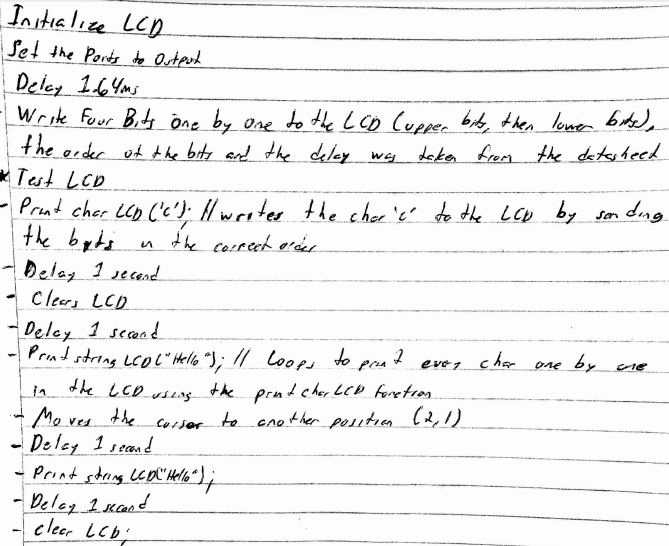 Initialize LCD
Set the Ports to Output
Delay 1.64ms
- Write Four Bits one by one to the LCD (upper bits, then lower bits),
the order of the bits and the delay was taken from the datasheet
* Test LCD
- Print char LCD ('c'); // writes the char 'c' to the LCD by sending
the bits in the correct order
- Delay 1 second
- Clears LCD
- Delay 1 second
- Print string LCD ("Hello"); // Loops to print every char one by one
in the LCD using the print char LCD function
- Moves the cursor to another position (2,1)
- Delay 1 second
- Print string LCD("Hello");
- Delay 1 second
- Clear LCD;